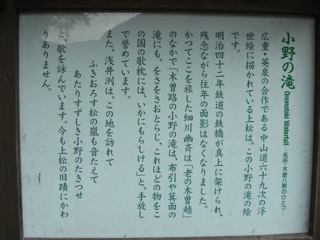 小野の滝 Ononotaki Waterfall ―名所・木曽八景のひとつ―
広重・英泉の合作である中山道六十九次の浮
世絵に描かれている上松は、この小野の滝の絵
です。
明治四十二年鉄道の鉄橋が真上に架けられ、
残念ながら往年の面影はなくなりました。
かつてここを旅した細川幽斉は「老の木曽越」
のなかで「木曽路の小野の滝は、布引や箕面の
滝にも、をさをさおとらじ、これほどの物をこ
の国の歌枕には、いかにもらしける」と、手放し
で誉めています。
また、浅井洌は、この地を訪れて
ふきおろす松の嵐も音たえて
あたりすずしき小野のたきつせ
と、歌を詠んでいます。今も上松の旧蹟にかわ
りありません。